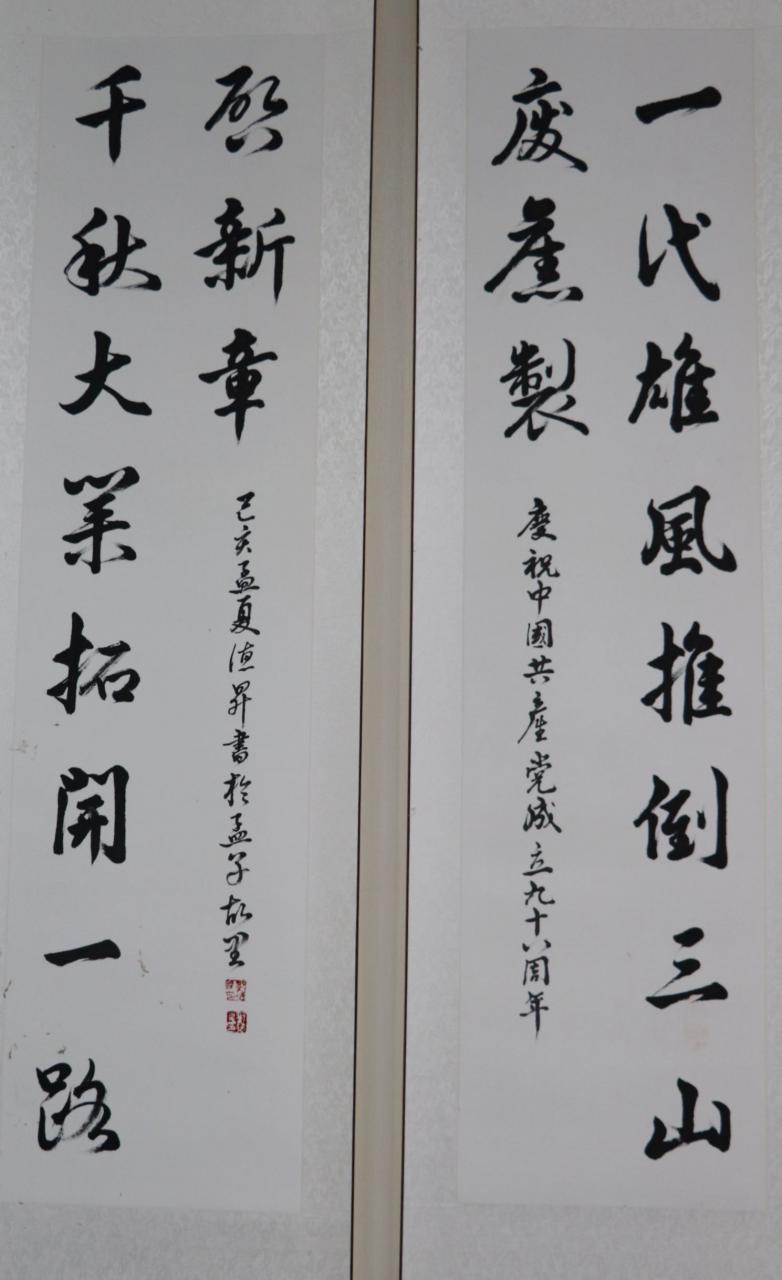 一代雄風推倒三山
廢舊製
慶祝中國共產党成立九十八周年
千秋大業拓開一路
啓新章
己亥孟夏德昇書於孟子故里